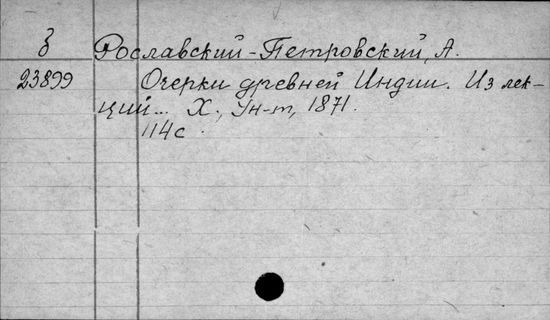 б Рославский-Петровский, А.
23899 Очерки древней Индии. Из лек-
ций... Х., Ун-т, 1871.
114 с.